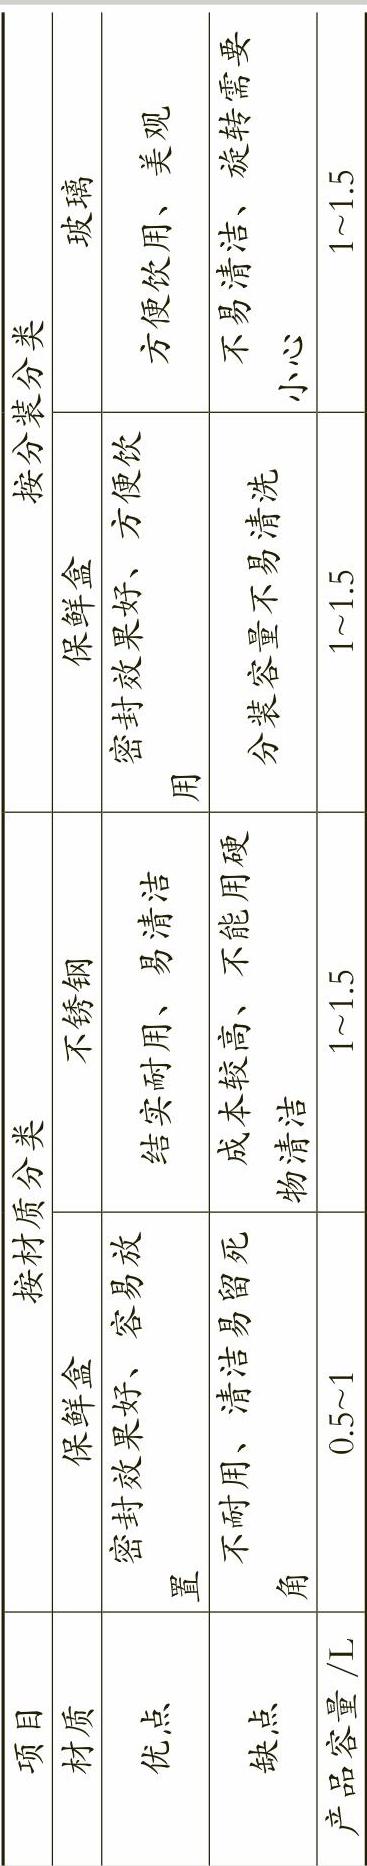 项目 按材质分类 按分装分类
材质 保鲜盒 不锈钢 保鲜盒 玻璃
优点 密封效果好、容易放 结实耐用、易清洁 密封效果好、方便饮 方便饮用、美观
置 用
缺点 不耐用、清洁易留死 成本较高、不能用硬 分装容量不易清洗 不易清洁、旋转需要
角 物清洁 小心
产品容量/L 0.5~1 1~1.5 1~1.5 1~1.5